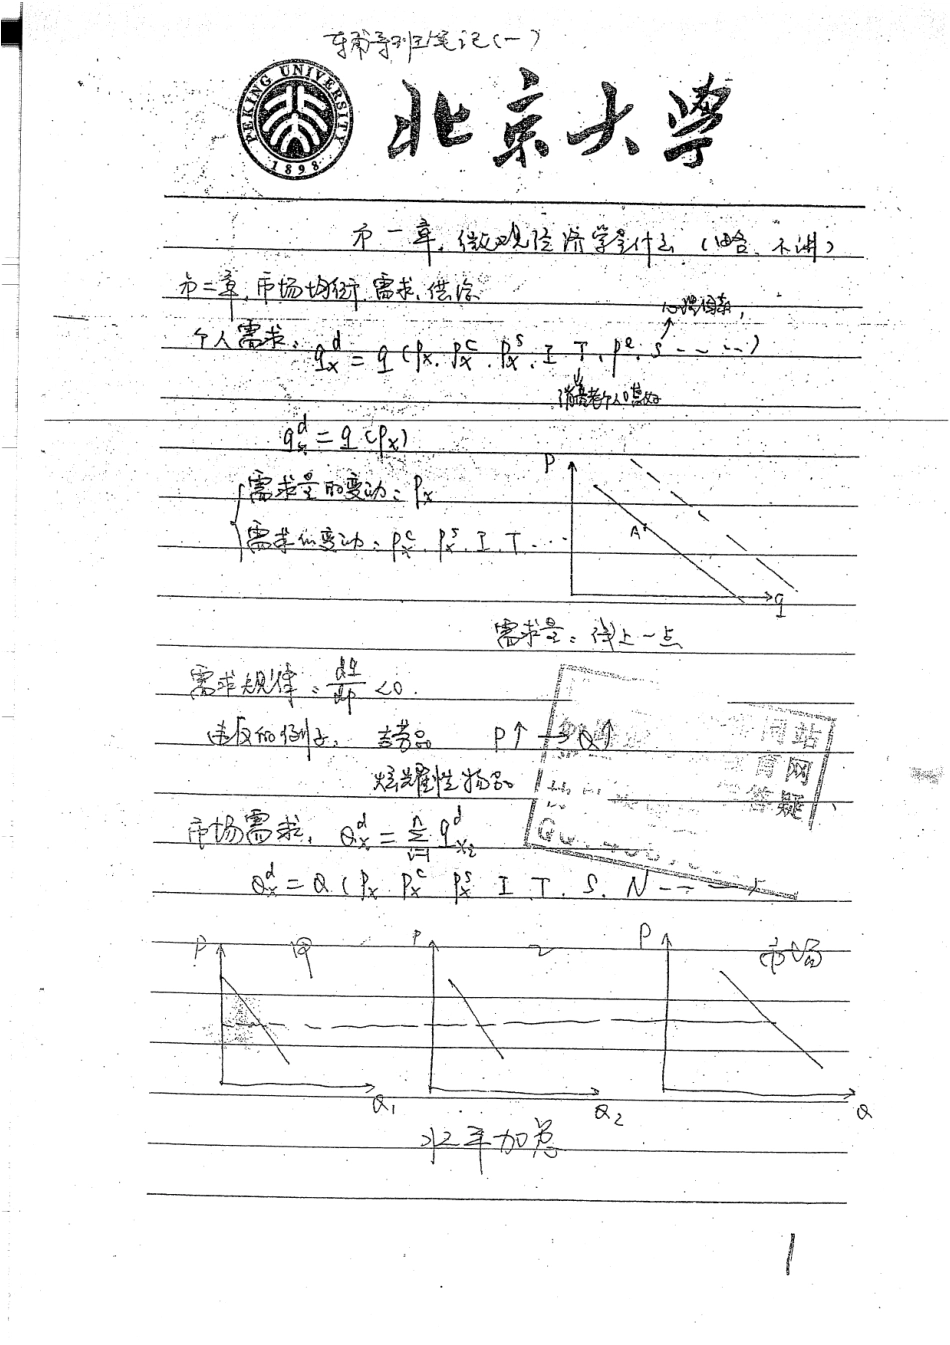 辅导班笔记(一)
PEKING UNIVERSITY 1898
北京大学
第一章,微观经济学是什么 (略、不讲)
第二章,市场均衡 需求、供给
心理因素,
个人需求: q_x^d = q (P_x. P_x^c. P_x^s. I T. P^e. S......)
消费者个人偏好
q_x^d = q (P_x)
P
需求量的变动: P_x
需求的变动: P_x^c. P_x^s. I. T. ...
A
q
需求量:线上一点
需求规律: dq/dp <0.
违反的例子: 吉芬品 P↑ → Q↑
炫耀性物品
网站
育网
答疑
市场需求, Q_x^d = Σ_{i=1}^n q_{xi}^d
Q_x^d = Q (P_x P_x^c P_x^s I T. S. N ......)
P 甲 P 乙 P 市场
Q_1 Q_2 Q
水平加总
1